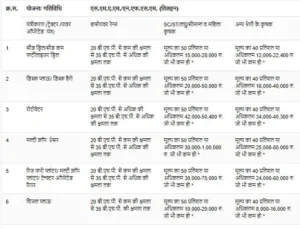 क्र.स. योजना/ गतिविधि एस.एम.ए.एम./एन.एफ.एस.एम. (तिलहन)
पंजीकरण (ट्रैक्टर /पावर ऑपरेटेड यंत्र) हर्सपावर रेंज SC/ST/लघु/सीमान्त व महिला कृषक अन्य श्रेणी के कृषक
1 सीड ड्रिल/सीड कम फर्टीलाइजर ड्रिल 20 बी.एच.पी. से कम की क्षमता से 35 बी.एच.पी. से अधिक की क्षमता तक मूल्य का 50 प्रतिशत या अधिकतम 15,000-28,000 रु. जो भी कम हो * मूल्य का 40 प्रतिशत या अधिकतम 12,000-22,400 रु. जो भी कम हो *
2 डिस्क प्लाऊ/ डिस्क हैरो 20 बी.एच.पी. से कम की क्षमता से 35 बी.एच.पी. से अधिक की क्षमता तक मूल्य का 50 प्रतिशत या अधिकतम 20,000-50,000 रु. जो भी कम हो * मूल्य का 40 प्रतिशत या अधिकतम 16,000-40,000 रु. जो भी कम हो *
3 रोटोवेटर 20 बी.एच.पी. से कम की क्षमता से 35 बी.एच.पी. से अधिक की क्षमता तक मूल्य का 50 प्रतिशत या अधिकतम 42,000-50,400 रु. जो भी कम हो * मूल्य का 40 प्रतिशत या अधिकतम 34,000-40,300 रु. जो भी कम हो *
4 मल्टी क्रॉप थ्रेसर 20 बी.एच.पी. से कम की क्षमता से 35 बी.एच.पी. से अधिक की क्षमता तक मूल्य का 50 प्रतिशत या अधिकतम 30,000-1,00,000 रु. जो भी कम हो * मूल्य का 40 प्रतिशत या अधिकतम 25,000-80,000 रु. जो भी कम हो *
5 रिज फरो प्लांटर/ मल्टी क्रॉप प्लांटर/ ट्रैक्टर ऑपरेटेड रीपर 20 बी.एच.पी. से कम की क्षमता से 35 बी.एच.पी. से अधिक की क्षमता तक मूल्य का 50 प्रतिशत या अधिकतम 30,000-75,000 रु. जो भी कम हो * मूल्य का 40 प्रतिशत या अधिकतम 24,000-60,000 रु. जो भी कम हो *
6 चिजल प्लाऊ 20 बी.एच.पी. से कम की क्षमता से 35 बी.एच.पी. से अधिक की क्षमता तक मूल्य का 50 प्रतिशत या अधिकतम 10,000-20,000 रु. जो भी कम हो * मूल्य का 40 प्रतिशत या अधिकतम 8,000-16,000 रु. जो भी कम हो *